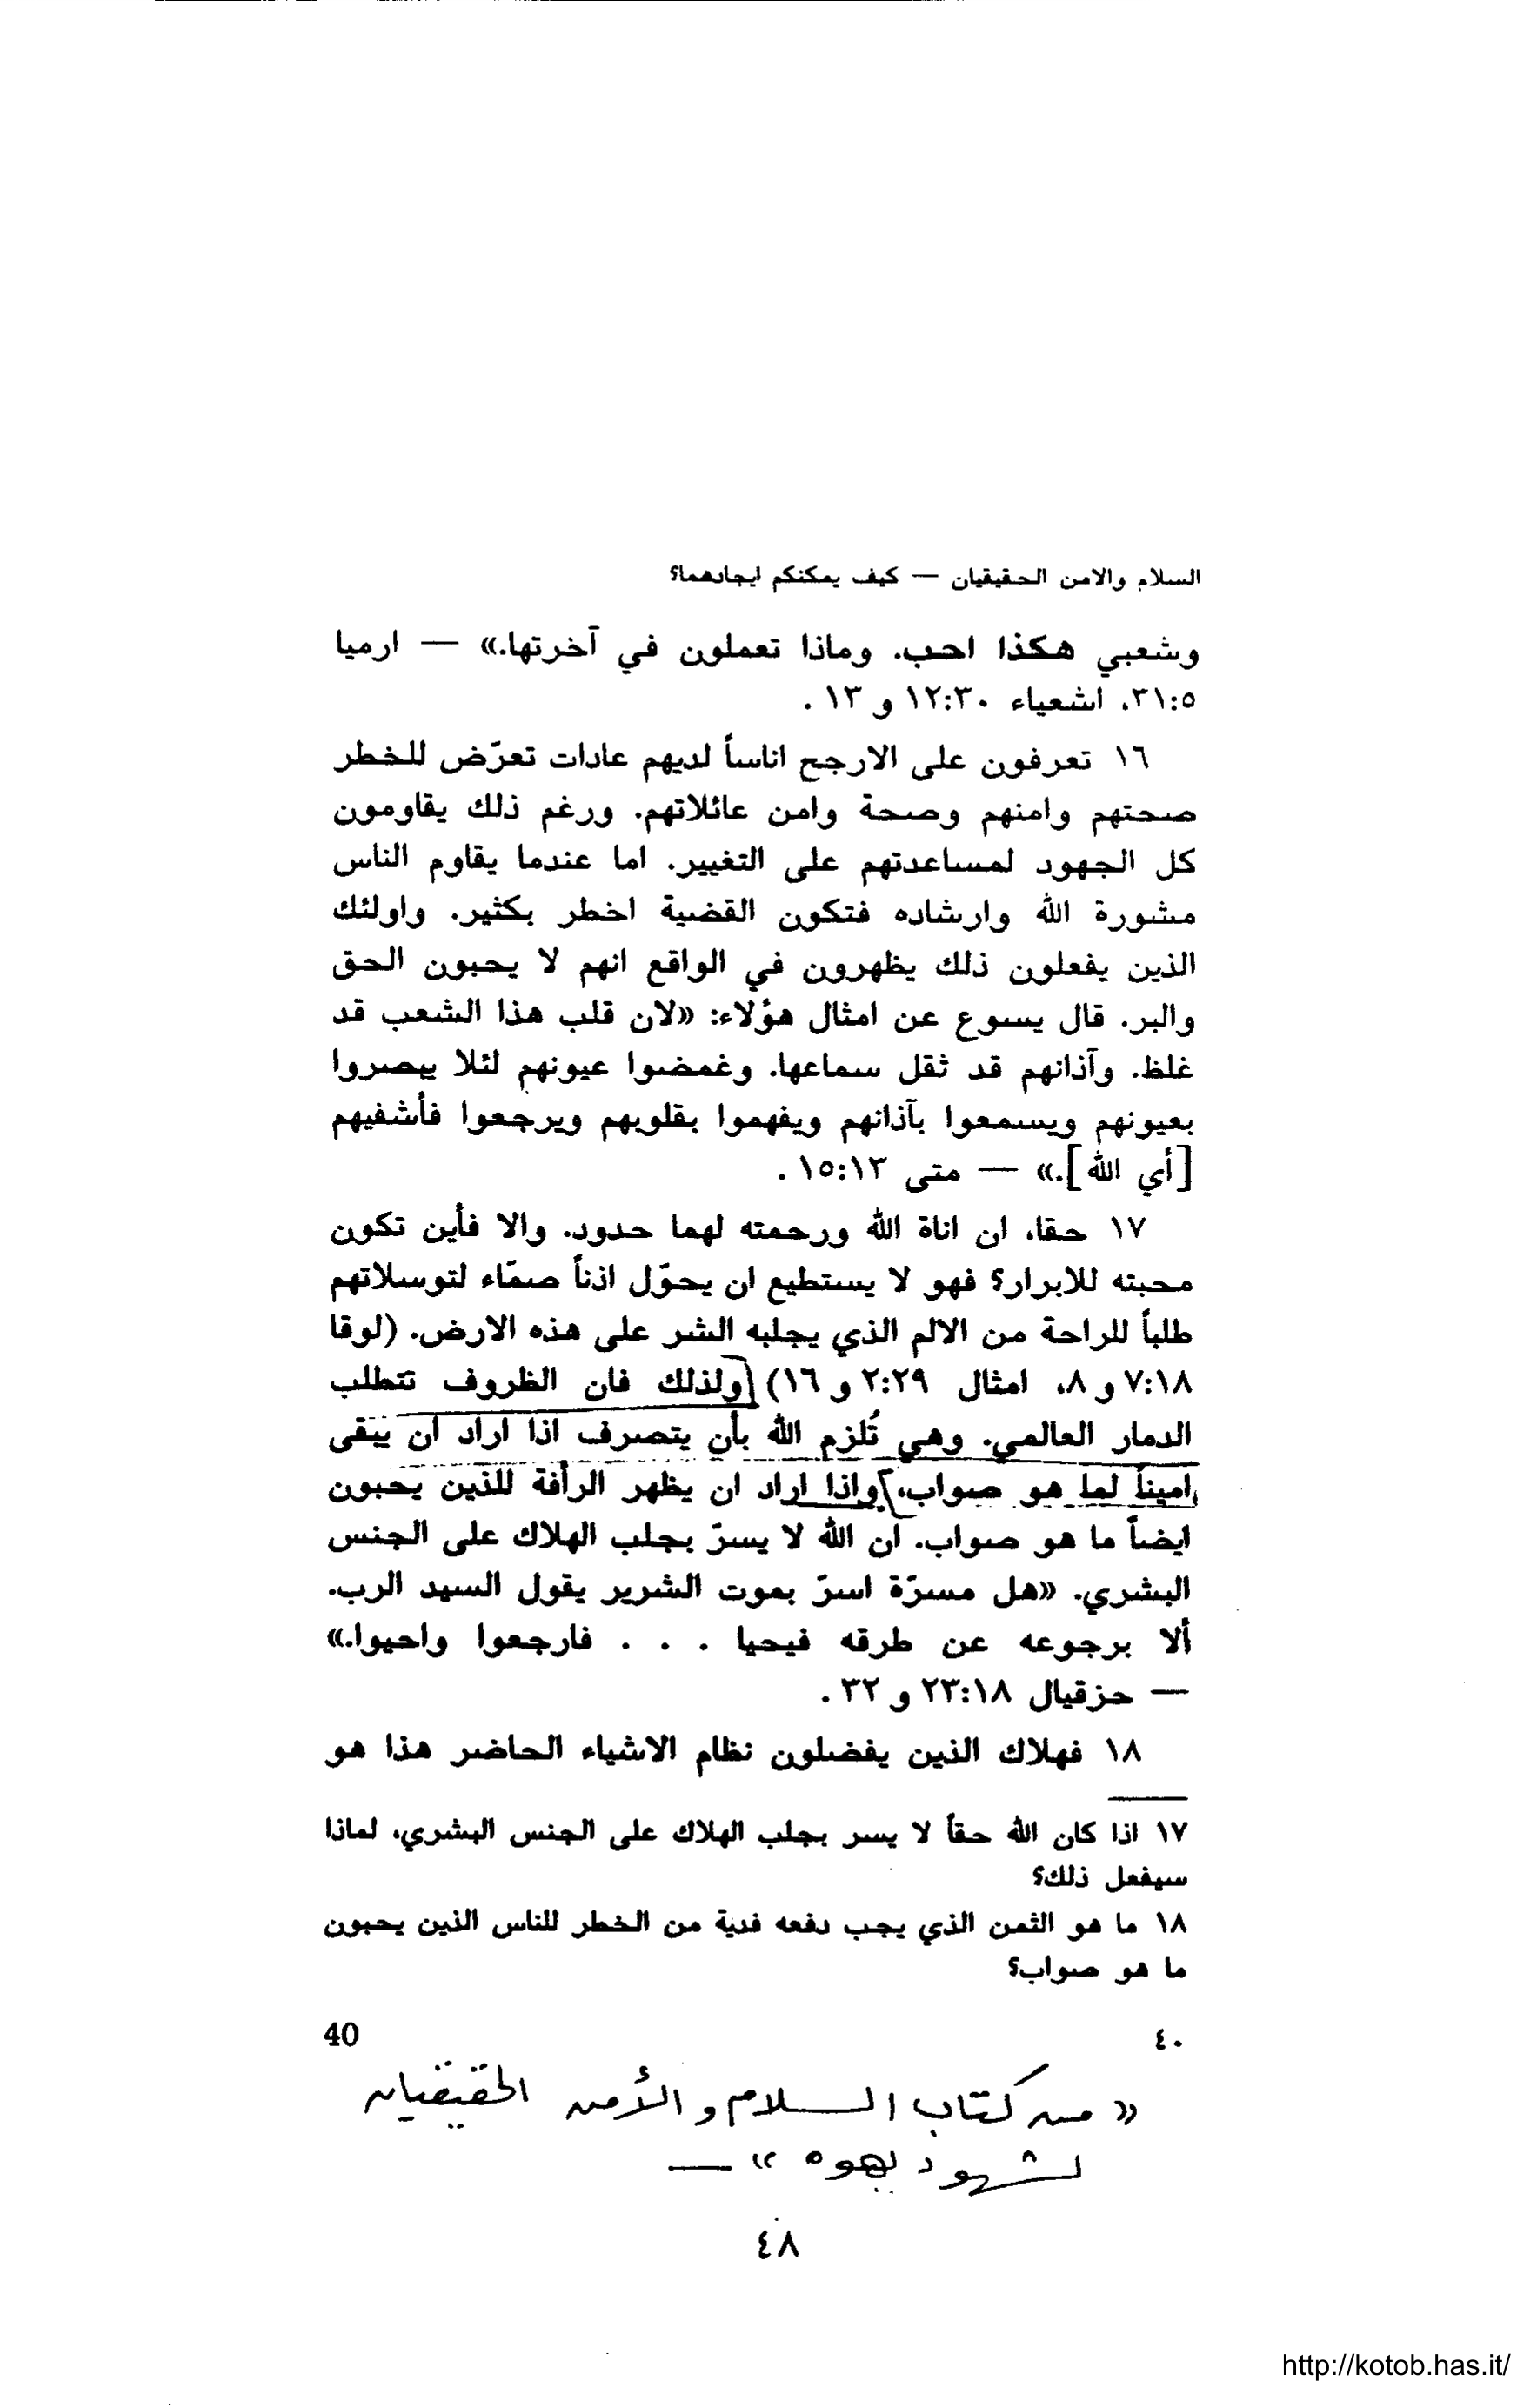 السلام والامن الحقيقيان — كيف يمكنكم ايجادهما؟
وشعبي هكذا احب. وماذا تعملون في آخرتها.» — ارميا
٣١:٥، اشعياء ١٢:٣٠ و ١٣ .
١٦ تعرفون على الارجح اناساً لديهم عادات تعرّض للخطر
صحتهم وامنهم وصحة وامن عائلاتهم. ورغم ذلك يقاومون
كل الجهود لمساعدتهم على التغيير. اما عندما يقاوم الناس
مشورة الله وارشاده فتكون القضية اخطر بكثير. واولئك
الذين يفعلون ذلك يظهرون في الواقع انهم لا يحبون الحق
والبر. قال يسوع عن امثال هؤلاء: «لان قلب هذا الشعب قد
غلظ. وآذانهم قد ثقل سماعها. وغمضوا عيونهم لئلا يبصروا
بعيونهم ويسمعوا بآذانهم ويفهموا بقلوبهم ويرجعوا فأشفيهم
[أي الله].» — متى ١٥:١٣ .
١٧ حقا، ان اناة الله ورحمته لهما حدود. والا فأين تكون
محبته للابرار؟ فهو لا يستطيع ان يحوّل اذناً صمّاء لتوسلاتهم
طلباً للراحة من الالم الذي يجلبه الشر على هذه الارض. (لوقا
٧:١٨ و ٨، امثال ٢:٢٩ و ١٦) ولذلك فان الظروف تتطلب
الدمار العالمي. وهي تُلزم الله بأن يتصرف اذا اراد ان يبقى
اميناً لما هو صواب، واذا اراد ان يظهر الرأفة للذين يحبون
ايضاً ما هو صواب. ان الله لا يسرّ بجلب الهلاك على الجنس
البشري. «هل مسرّة اسرّ بموت الشرير يقول السيد الرب.
ألا برجوعه عن طرقه فيحيا . . . فارجعوا واحيوا.»
— حزقيال ٢٣:١٨ و ٣٢ .
١٨ فهلاك الذين يفضلون نظام الاشياء الحاضر هذا هو
١٧ اذا كان الله حقاً لا يسر بجلب الهلاك على الجنس البشري، لماذا
سيفعل ذلك؟
١٨ ما هو الثمن الذي يجب دفعه فدية من الخطر للناس الذين يحبون
ما هو صواب؟
٤٠ 40
« من كتاب السلام و الأمن الحقيقيان
لشهود يهوه » —
٤٨
http://kotob.has.it/